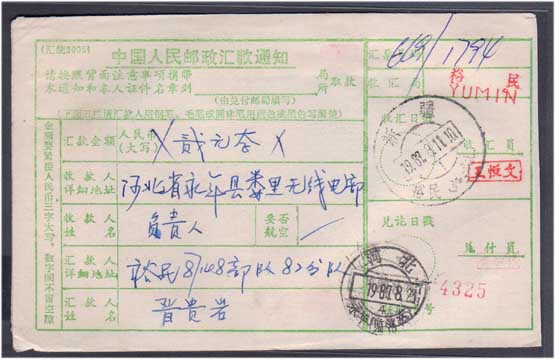 (汇统2005)
中国人民邮政汇款通知
请按照背面注意事项携带
本通知和本人证件名章到 局所 取款
(由兑付邮局填写)
汇票号 669/1794
收汇局 裕民
YUMIN
汇款金额 人民币(大写) X 贰元叁 X
收款人详细地址 河北省永年县娄里无线电部
收款人姓名 负责人 要否航空
汇款人详细地址 裕民87148部队82分队
汇款人姓名 晋贵岩
金额要紧接人民币三字大写，数字间不留空隙
收汇日
新疆
裕民
收汇员
王恒文
兑讫日戳
河北
1987.8.25
兑付员
4325
号